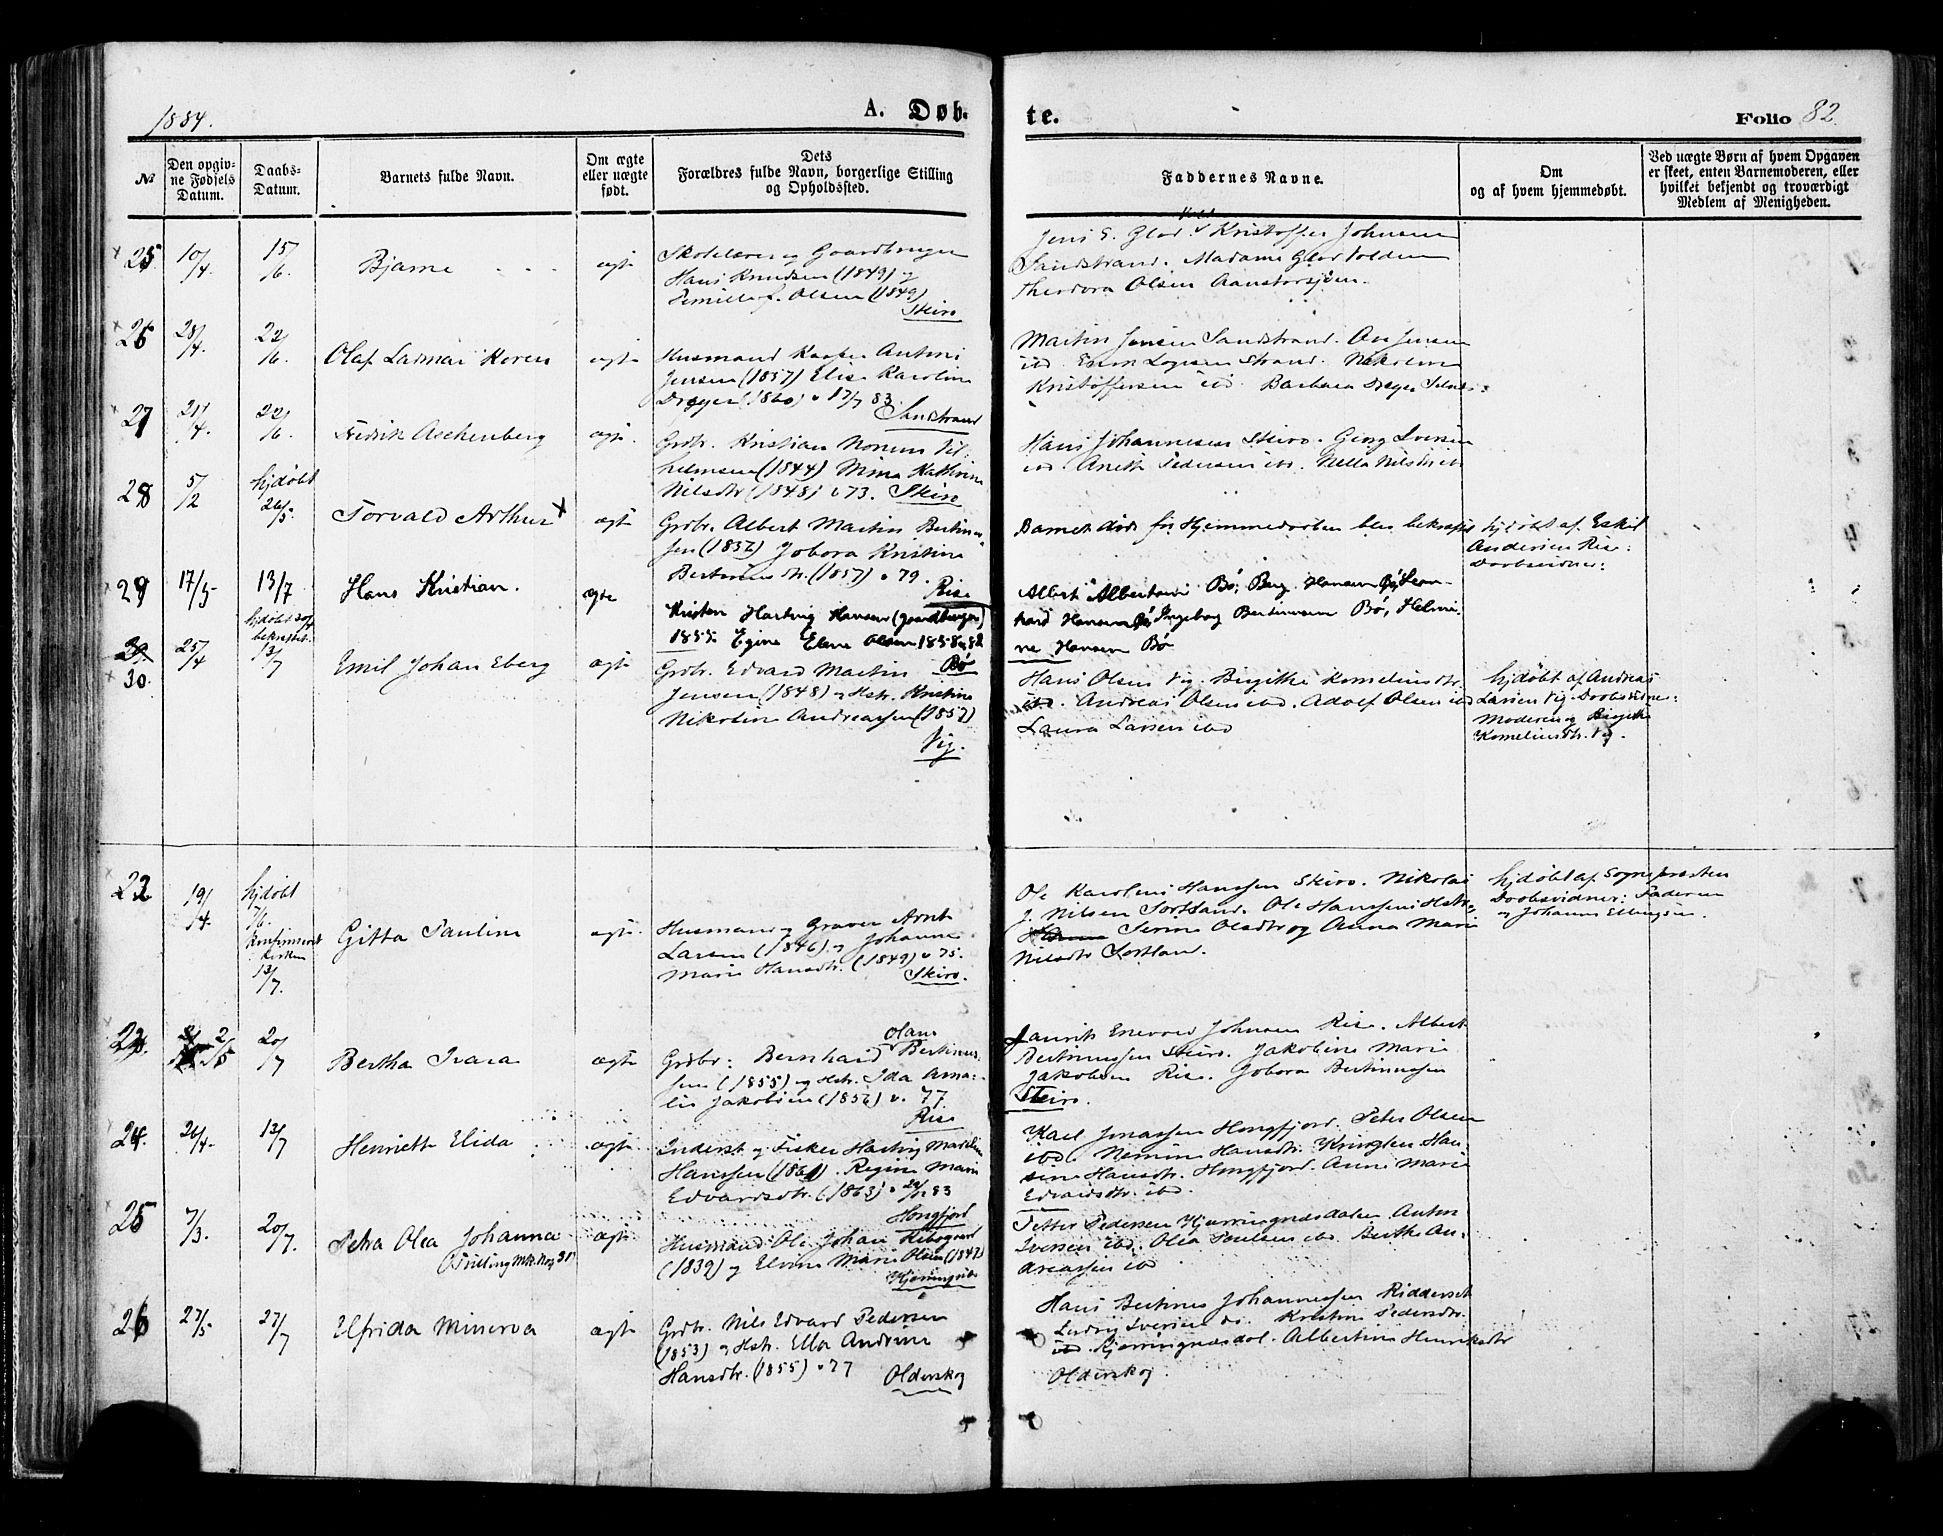 1884.
A. Døb-
te.
Folio 82.
№
Den opgiv-
ne Fødsels
Datum.
Daabs-
Datum.
Barnets fulde Navn.
Om ægte
eller uægte
født.
Dets
Forældres fulde Navn, borgerlige Stilling
og Opholdssted.
Faddernes Navne.
Om
og af hvem hjemmedøbt.
Ved uægte Børn af hvem Opgaven
er skeet, enten Barnemoderen, eller
hvilket bekjendt og troværdigt
Medlem af Menigheden.
25
10/4.
15/6.
Bjarne
ægte
Skolelærer og Gaardbruger
Hans Knudsen (1849) og
f. Olsen (1849)
Skiro
Jens E. Glad. Kristoffer Johnsen
Sandstrand. Madame Glad
Theodora Olsen
26
28/4.
22/6.
Olaf
ægte
Husmand Kasper Antoni
Jensen (1857) Elise Karoline
Dreyer (1860) v 17/7 83.
Sandstrand
Martin Jensen Sandstrand. Ove Jensen
ibd. Strand. Nikoline
Kristoffersen ibd. Barbara Dreyer
27
21/4.
22/6.
Fredrik Aschenberg
ægte.
Grdbr. Kristian Vil-
helmsen (1844) Mina Kathrine
Nilsdtr (1848) v 73. Skiro
Hans Johannesen Skiro. Georg Iversen
ibd Anette Pedersen ibd. Nella Nilsdtr ibd
28
5/2
hjdøbt
26/5.
Torvald Arthur x
ægte
Grdbr. Albert Martin Bertinus-
sen (1852) Jobora Kristine
Bertinusdtr. (1857) v 79.
Rise
Barnet døde før Hjemmedaaben blev bekræftet
hjdøbt af Eskil
Andersen Rise.
Daabsvidner:
29
17/5
13/7
Hans Kristian.
ægte
Kristen Hartvig Hansen (gaardbruger)
1855 Egine Elene Olsen 1858 v. 82
Bø
Albert Albertsen Bø, Berg Hansen Bø, Leon-
hard Hansen Bø Ingeborg Bertinusen Bø, Helmi-
ne Hansen Bø
30.
25/4
hjdøbt 30/4
bekræftet
13/7
Emil Johan Eberg
ægte
Grdbr. Edvard Martin
Jensen (1848) og Hstr. Kristine
Nikoline Andreassen (1857)
Vig.
Hans Olsen Vig. Birgithe Korneliusdtr.
ibd. Andreas Olsen ibd. Adolf Olsen ibd
Laura Larsen ibd
hjdøbt af Andreas
Larsen Vig. Daabsvidner:
Moderen og Birgithe
Korneliusdtr. Vig.
22
19/4.
hjdøbt
7/6.
Konfirmeret
i Kirken
13/7.
Gitta Pauline
ægte
Husmand og Graver Arnt
Larsen (1846) og Johanne
Marie Hansdtr. (1849) v 75.
Skiro.
Ole Karolius Hanssen Skiro. Nikolai
J. Nilsen Sortland. Ole Hanssens Hstr.
Serine Olsdtr og Anna Marie
Nilsdtr Sortland.
hjdøbt af Sognepræsten
Daabsvidner: Faderen
og Johannes Ellingsen.
23.
2/5
20/7
Bertha Ivara
ægte
Grdbr: Bernhard Olaus Bertinus-
sen (1855) og Hstr. Ida Ama-
lie Jakobsen (1856) v. 77
Rise
Laurits Enevold Johnsen Rise. Albert
Bertinussen Skiro. Jakobine Marie
Jakobsen Rise. Jobora Bertinussen
Skiro.
24.
26/4.
13/7
Henriette Elida
ægte
Inderst og Fisker Hartvig
Hanssen (1861). Regine Marie
Edvardsdtr. (1863) v 83
Hongfjord
Karl Jonassen Hongfjord. Peter Olsen
ibd. Hansdtr. Han-
sine Hansdtr. Hongfjord. Anne Marie
Edvardsdtr. ibd.
25
7/3.
20/7.
Petra Olea Johanna
(Tvilling
ægte
Husmand Ole Johan
(1839) og Marie Olsen (1842)
Petter Pedersen Kjerringnesdalen Anton
Iversen ibd. Olea Paulsen ibd Berthe An-
dreassen ibd
26
27/5
27/7
Elfrida Minerva
ægte
Grdbr. Nils Edvard Pedersen
(1853) og Hstr. Ella Andrine
Hansdtr. (1855) v 77
Olderskog
Hans Bertinus Johannessen
Ludvig Iversen do. Kristine Pedersdtr.
ibd Kjerringnesdal. Albertine Henriksdtr
Olderskog.